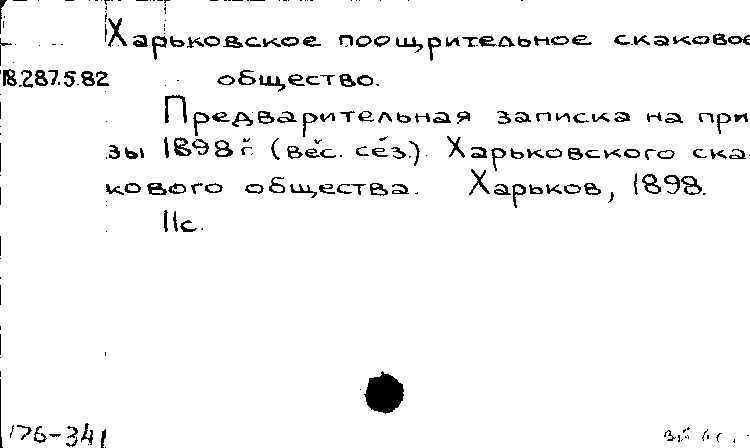 Харьковское поощрительное скаковое
18.287.5.82 общество.
Предварительная записка на при
зы 1898 г. (вес. сез.) Харьковского ска-
кового общества. Харьков, 1898.
11с.
176-341